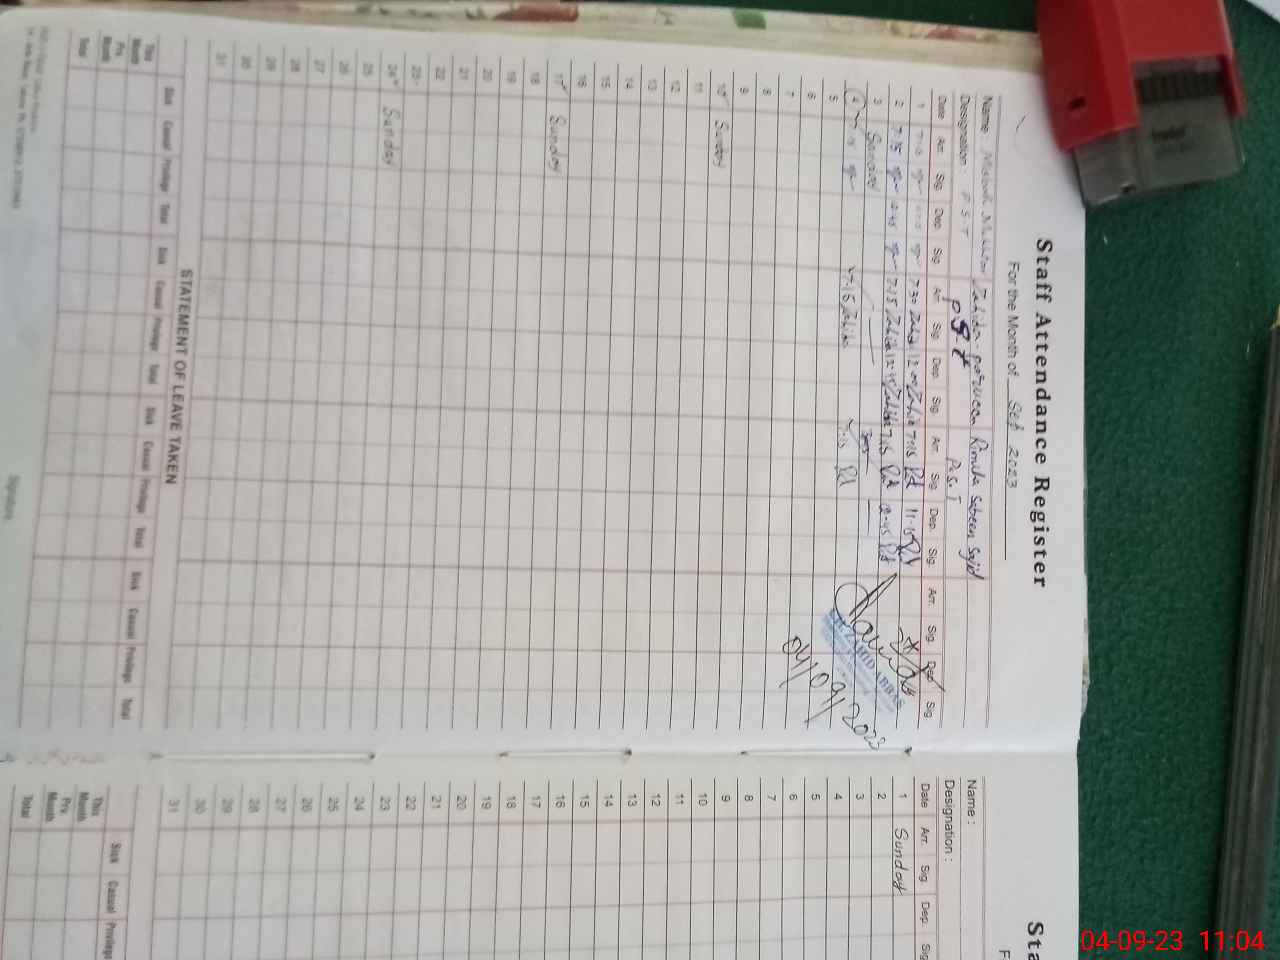 Staff Attendance Register
For the Month of Sep 2023
Name : Zahida parveen Rimila Sabeen Sajid
Designation : P S T P S T P.S.T
Date Arr. Sig. Dep. Sig. Arr. Sig. Dep. Sig. Arr. Sig. Dep. Sig. Arr. Sig. Dep. Sig.
1 7:15 7:30 Zahida 12:00 Zahida 7:15 11:15
2 7:15 12:45 7:15 Zahida 12:45 Zahida 7:15 12:45
3 Sunday
4 7:15 7:15 Zahida 7:15
5
6
7
8
9
10 Sunday
11
12
13
14
15
16
17 Sunday
18
19
20
21
22
23
24 Sunday
25
26
27
28
29
30
31
ZAHID ABBAS
04/09/2023
STATEMENT OF LEAVE TAKEN
Sick Casual Privilege Total Sick Casual Privilege Total Sick Casual Privilege Total Sick Casual Privilege Total
This Month
Prv. Month
Total
Signature
Sta
F
Name :
Designation :
Date Arr. Sig. Dep. Sig.
1 Sunday
2
3
4
5
6
7
8
9
10
11
12
13
14
15
16
17
18
19
20
21
22
23
24
25
26
27
28
29
30
31
Sick Casual Privilege
This Month
Prv. Month
Total
04-09-23 11:04